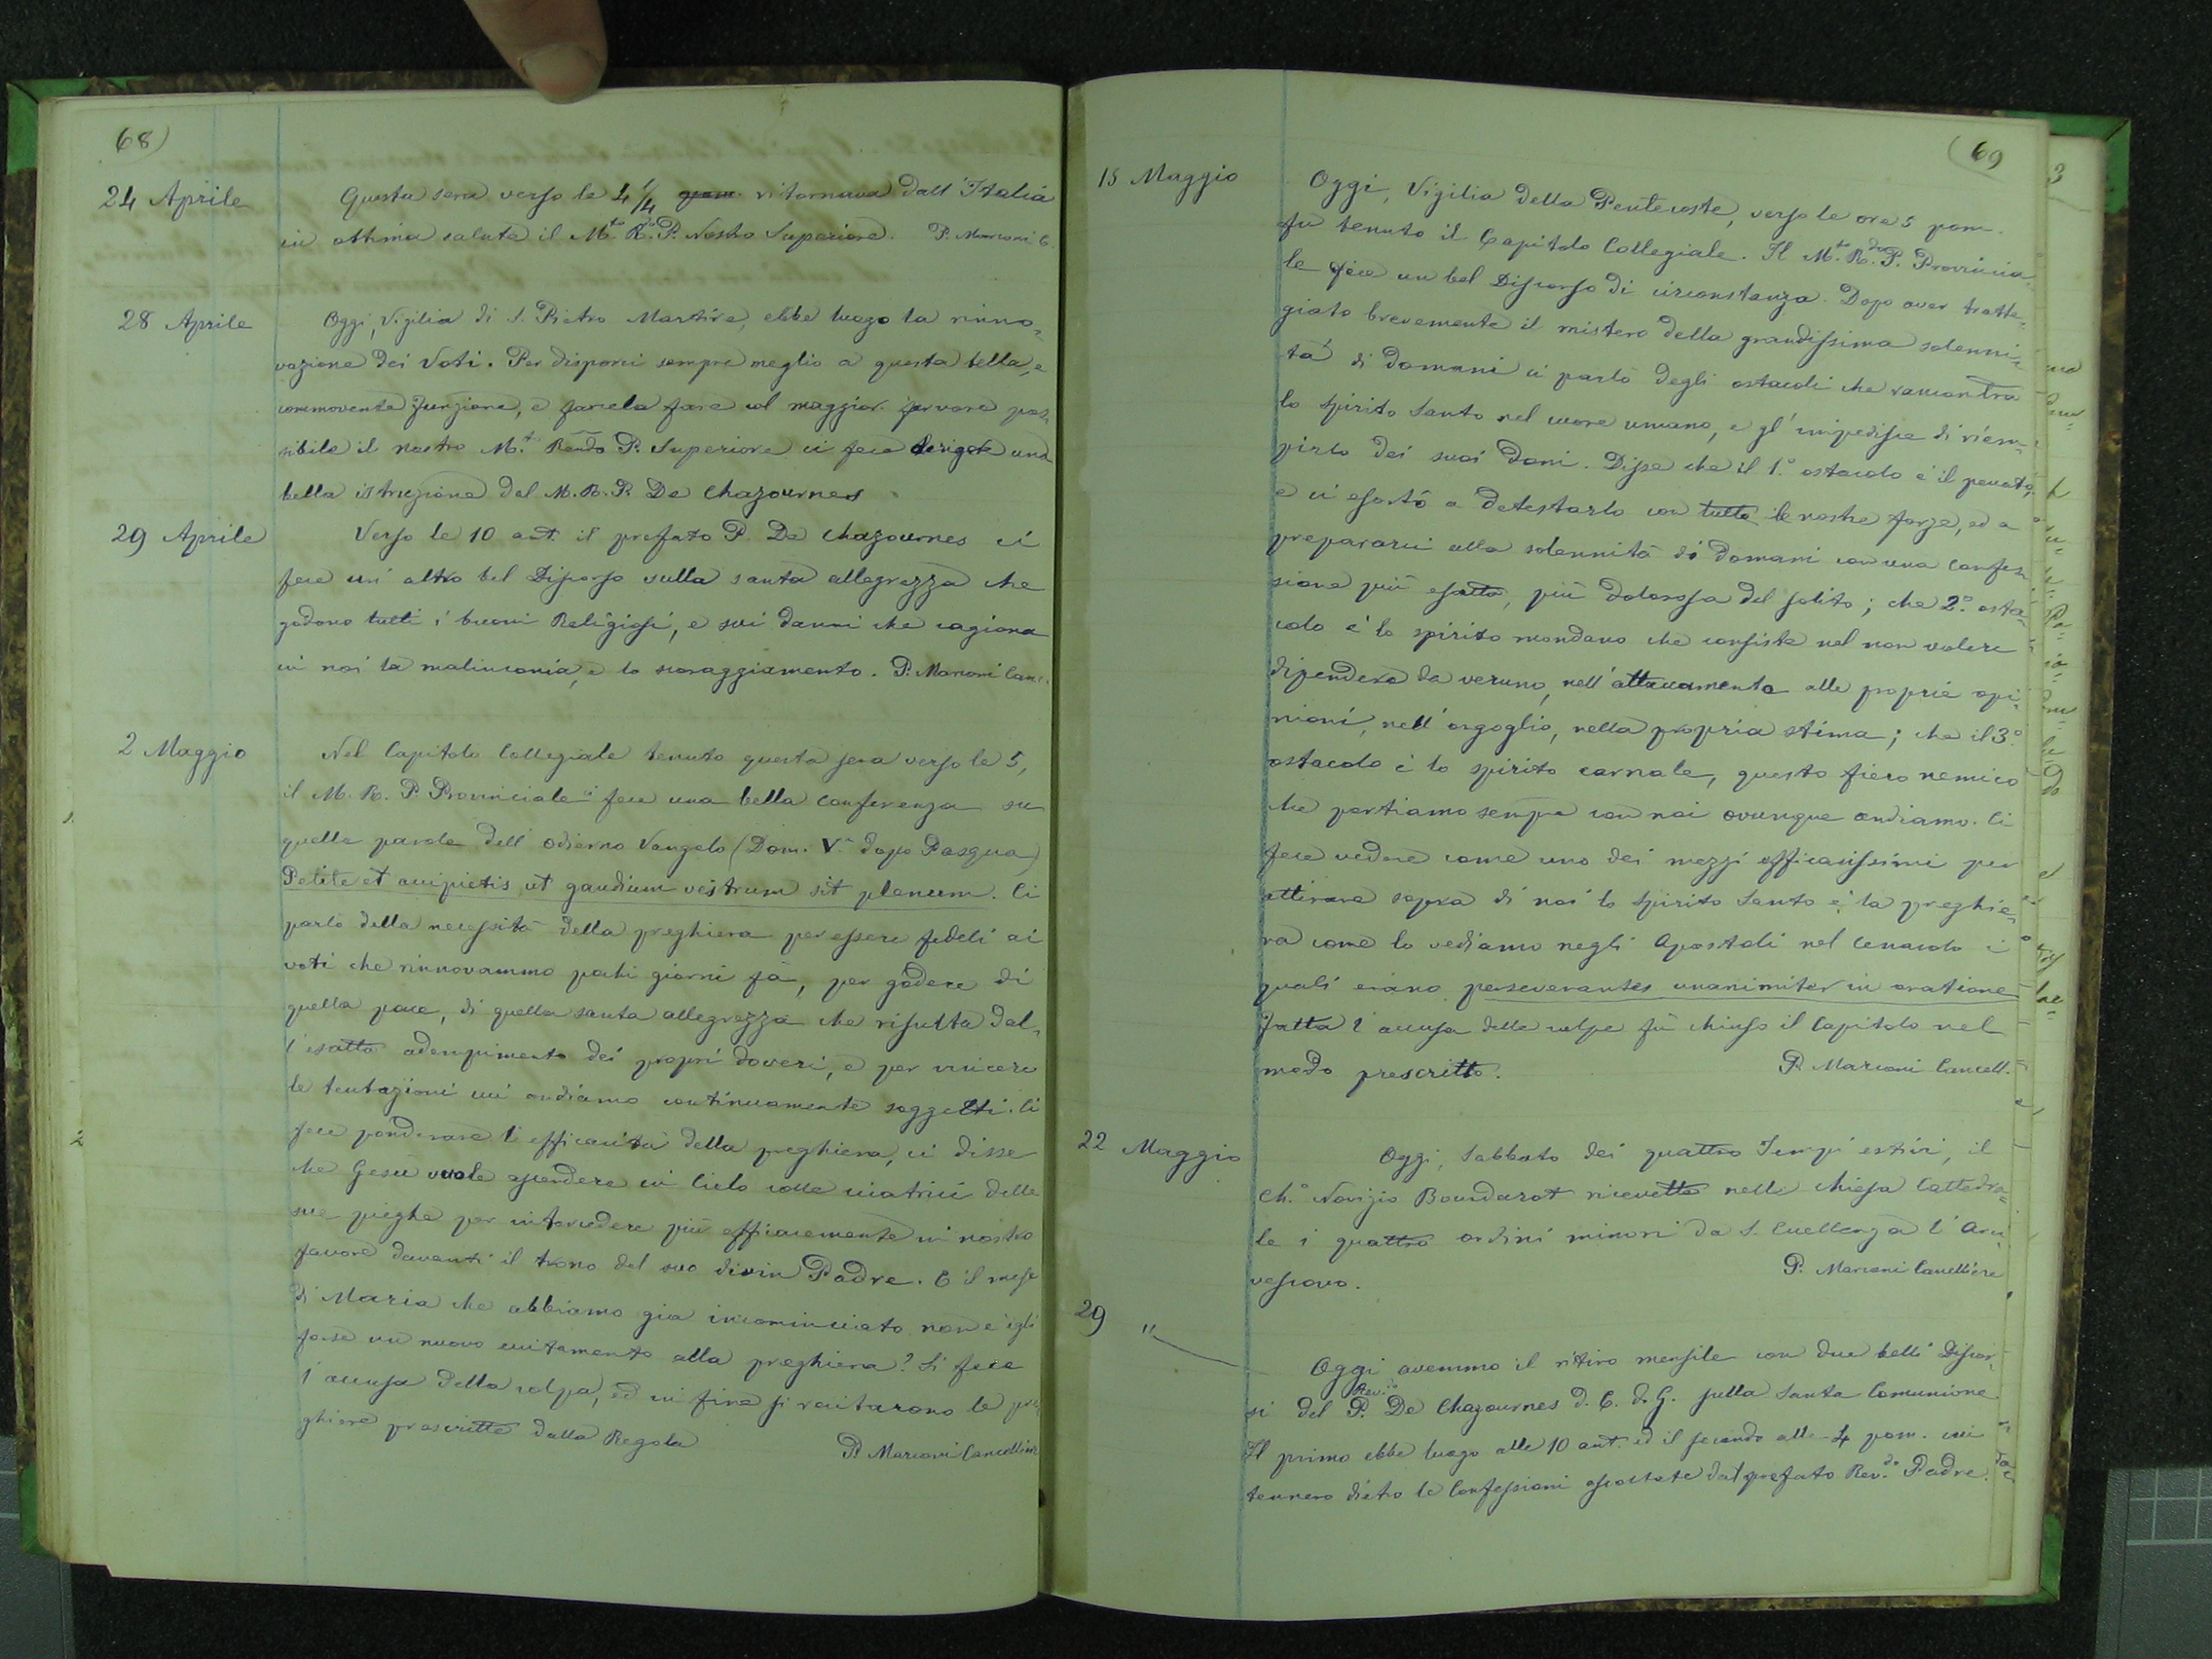 68)
24 Aprile
Questa sera verso le 4 1/4 pom. ritornava dall'Italia
in ottima salute il M.to R.do P. Nostro Superiore. P. Marconi C.
28 Aprile
Oggi, Vigilia di S. Pietro Martire, ebbe luogo la rinno=
vazione dei Voti. Per disporci sempre meglio a questa bella, e
commovente funzione, e farcela fare col maggior fervore pos=
sibile il nostro M.to Rendo P. Superiore ci fece una
bella istruzione dal M. R. P. De Chazournes.
29 Aprile
Verso le 10 ant. il prefato P. De Chazournes ci
fece un'altro bel Discorso sulla santa allegrezza che
godono tutti i buoni Religiosi, e sui danni che cagiona
in noi la malinconia, e lo scoraggiamento. P. Marconi Canc.
2 Maggio
Nel Capitolo Collegiale tenuto questa sera verso le 5,
il M. R. P. Provinciale ci fece una bella conferenza su
quelle parole dell'odierno Vangelo (Dom. V.a dopo Pasqua)
Petite et accipietis, ut gaudium vestrum sit plenum. Ci
parlò della necessità della preghiera per essere fedeli ai
voti che rinnovammo pochi giorni fà, per godere di
quella pace, di quella santa allegrezza che risulta dal=
l'esatto adempimento dei propri doveri, e per vincere
le tentazioni cui andiamo continuamente soggetti. Ci
fece ponderare l'efficacità della preghiera, ci disse
che Gesù vuole ascendere in Cielo colle cicatrici delle
sue pieghe per intercedere più efficacemente in nostro
favore davanti il trono del suo divin Padre. E il mese
di Maria che abbiamo già incominciato non è egli
forse un nuovo eccitamento alla preghiera? Si fece
l'accusa della colpa, ed in fine si recitarono le pre=
ghiere prescritte dalla Regola
P. Marconi Cancelliere
(69
15 Maggio
Oggi, Vigilia della Pentecoste, verso le ore 5 pom.
fù tenuto il Capitolo Collegiale. Il M.to R.do P. Provincia=
le fece un bel Discorso di circonstanza. Dopo aver tratte=
giato brevemente il mistero della grandissima solenni=
tà di domani ci parlò degli ostacoli che rancontra
lo Spirito Santo nel cuore umano, e gl'impedisce di riem=
pirlo dei suoi doni. Disse che il 1.o ostacolo è il peccato,
e ci esortò a detestarlo con tutte le nostre forze, ed a
prepararci alla solennità di domani con una confes=
sione più esatta, più dolorosa del solito; che 2.o osta=
colo è lo spirito mondano che consiste nel non volere
dipendere da veruno, nell'attaccamento alle proprie opi=
nioni, nell'orgoglio, nella propria stima; che il 3.o
ostacolo è lo spirito carnale, questo fiero nemico
che portiamo sempre con noi ovunque andiamo. Ci
fece vedere come uno dei mezzi efficacissimi per
attirare sopra di noi lo Spirito Santo è la preghie=
ra come lo vediamo negli Apostoli nel Cenacolo i
quali erano perseverantes unanimiter in oratione
Fatta l'accusa delle colpe fù chiuso il Capitolo nel
modo prescritto. P. Marconi Cancell.
22 Maggio
Oggi, Sabbato dei quattro Tempi estivi, il
Ch.o Novizio Boundarot ricevette nella Chiesa Cattedra=
le i quattro ordini minori da S. Eccellenza l'Arci=
vescovo.
P. Marconi Cancelliere
29 "
Oggi avemmo il ritiro mensile con due belli Discor=
si del Rev.do P. De Chazournes d. C. d. G. sulla Santa Comunione
Il primo ebbe luogo alle 10 ant. ed il secondo alle 4 pom. cui
tennero dietro le Confessioni ascoltate dal prefato Rev.do Padre.